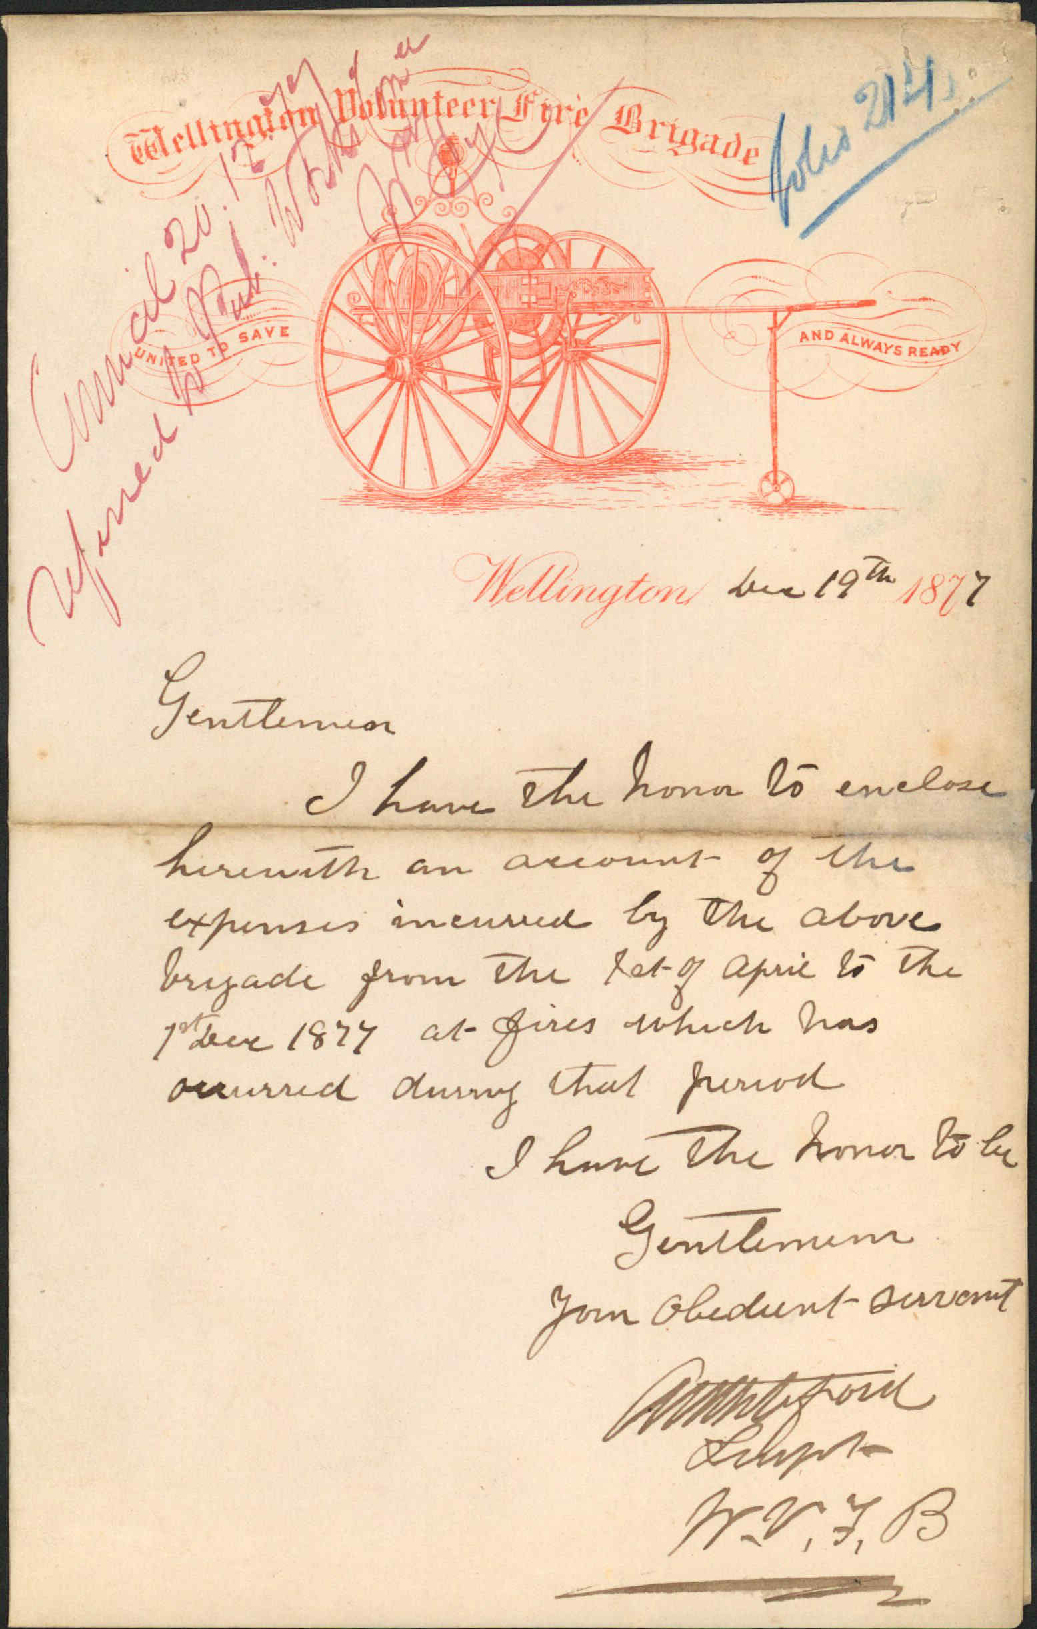 Wellington Volunteer Fire Brigade
folio 214.
Council 20.12.77
referred to Pub. Works
UNITED TO SAVE
AND ALWAYS READY
Wellington Dec 19th 1877
Gentlemen
I have the honor to enclose
herewith an account of the
expenses incurred by the above
brigade from the 1st of April to the
1st Dec 1877 at fires which has
occurred during that period
I have the honor to be
Gentlemen
Your obedient servant
Supt
W. V. F. B